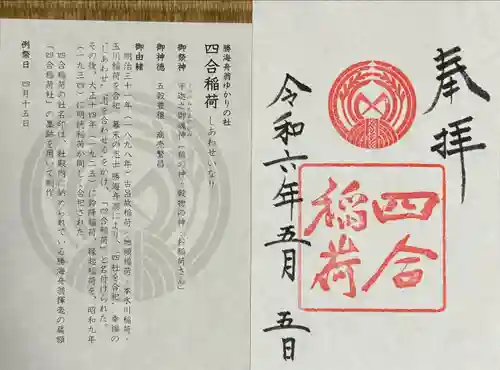 勝海舟翁ゆかりの社
四合稲荷 しあわせいなり
御祭神
御神徳 五穀豊穣 商売繁昌
御由緒
明治三十一年(一八九八年)古呂故稲荷・地頭稲荷・本氷川稲荷・
玉川稲荷を合祀 幕末の志士 勝海舟翁により、「四社を合祀・幸福の
しあわせ」「志を合わせる」をかけ、「四合稲荷」と名付けられた。
その後、大正十四年(一九二五)に鈴降稲荷、縁起稲荷を、昭和九年
(一九三四)に明徳稲荷が同じく合祀された。
四合稲荷の社名印は、社殿内に納められている勝海舟翁揮毫の扁額
「四合稲荷社」の墨跡を用いて制作
例祭日 四月十五日
奉拝
四合
稲荷
令和六年五月 五日